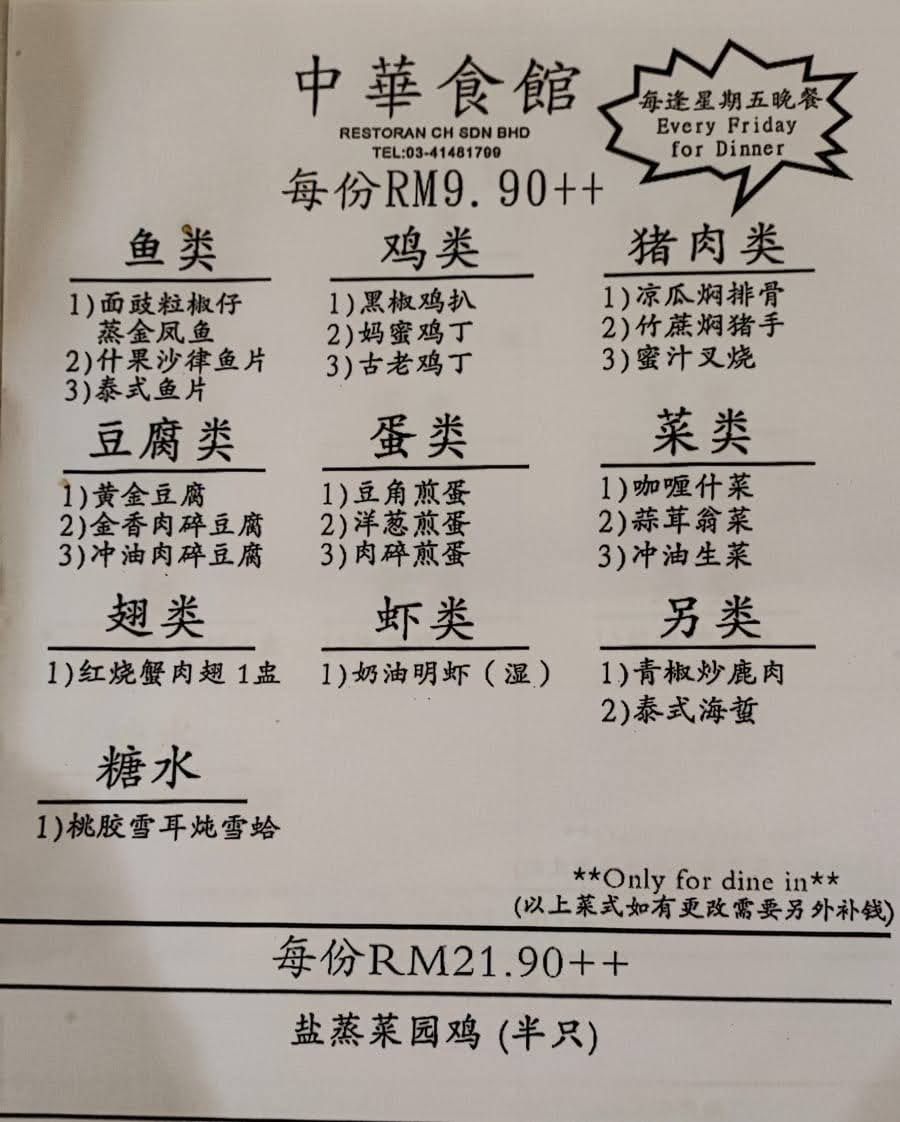 中華食館
RESTORAN CH SDN BHD
TEL:03-41481799
每逢星期五晚餐
Every Friday
for Dinner
每份RM9.90++
鱼类
1)面豉粒椒仔
蒸金凤鱼
2)什果沙律鱼片
3)泰式鱼片
鸡类
1)黑椒鸡扒
2)妈蜜鸡丁
3)古老鸡丁
猪肉类
1)凉瓜焖排骨
2)竹蔗焖猪手
3)蜜汁叉烧
豆腐类
1)黄金豆腐
2)金香肉碎豆腐
3)冲油肉碎豆腐
蛋类
1)豆角煎蛋
2)洋葱煎蛋
3)肉碎煎蛋
菜类
1)咖喱什菜
2)蒜茸翁菜
3)冲油生菜
翅类
1)红烧蟹肉翅 1盅
虾类
1)奶油明虾(湿)
另类
1)青椒炒鹿肉
2)泰式海蜇
糖水
1)桃胶雪耳炖雪蛤
**Only for dine in**
(以上菜式如有更改需要另外补钱)
每份RM21.90++
盐蒸菜园鸡 (半只)